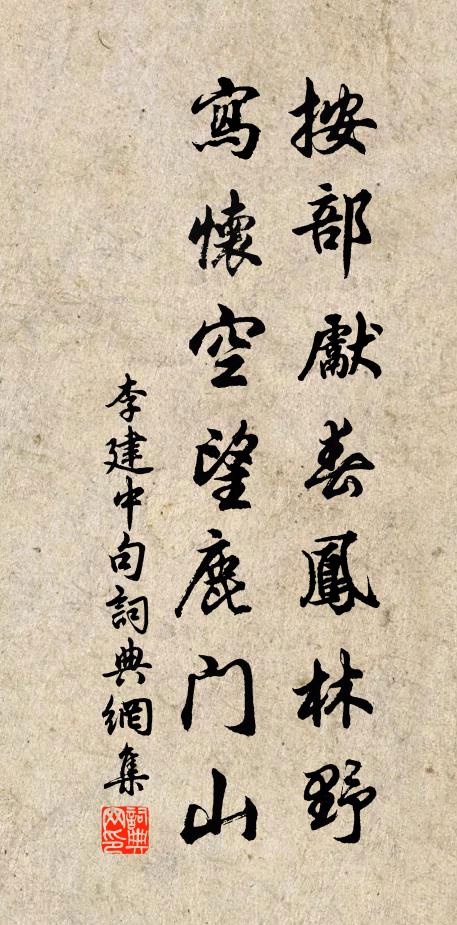 按部獻春鳳林野
寫懷空望鹿门山
李建中句詞典網集
詞典网印